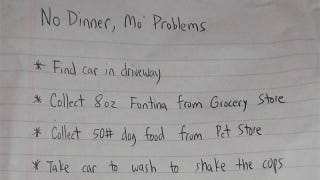 No Dinner, Mo' Problems
* Find car in driveway
* Collect 8oz Fontina from Grocery Store
* Collect 50# dog food from Pet Store
* Take car to wash to shake the cops